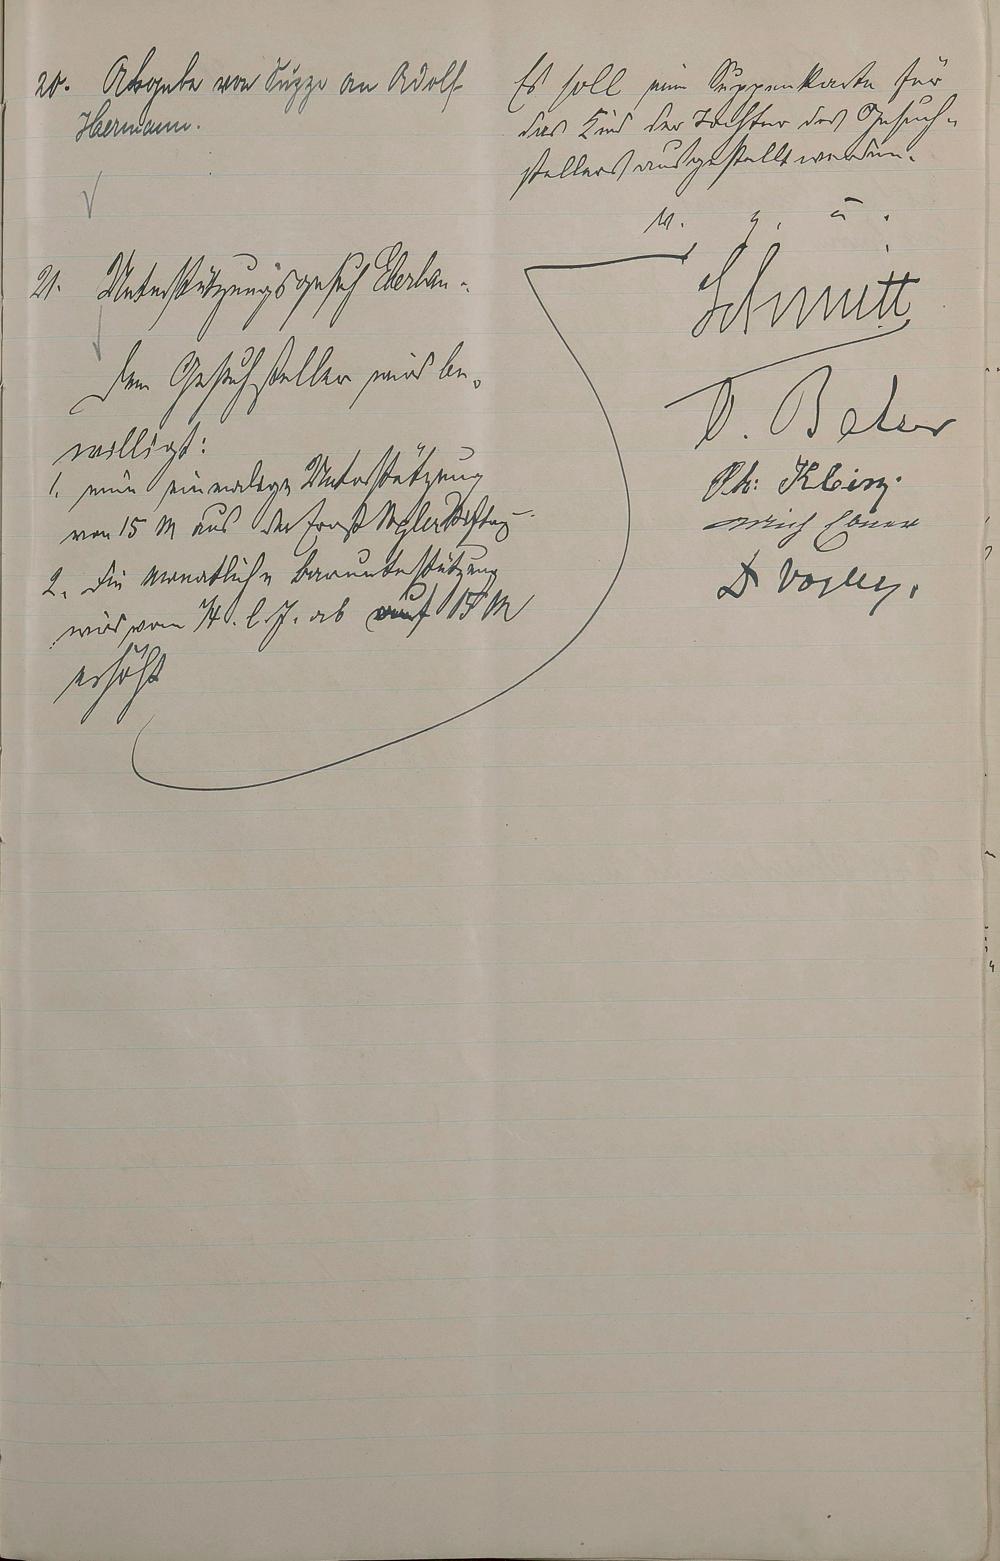 20. Abgabe von Suppe an Adolf
Hermann.
Es soll eine Suppenkarte für
das Kind der Tochter des Gesuch-
stellers ausgestellt werden.
v. g. u.
21. Unterstützungsgesuch Eberlen.
Dem Gesuchsteller wird be-
willigt:
1. eine einmalige Unterstützung
von 15 M aus der Ernst
2. Die monatliche Barunterstützung
wird vom l. J. ab auf 15 M
erhöht
Schmitt
Ph: Klein
D Vogley.